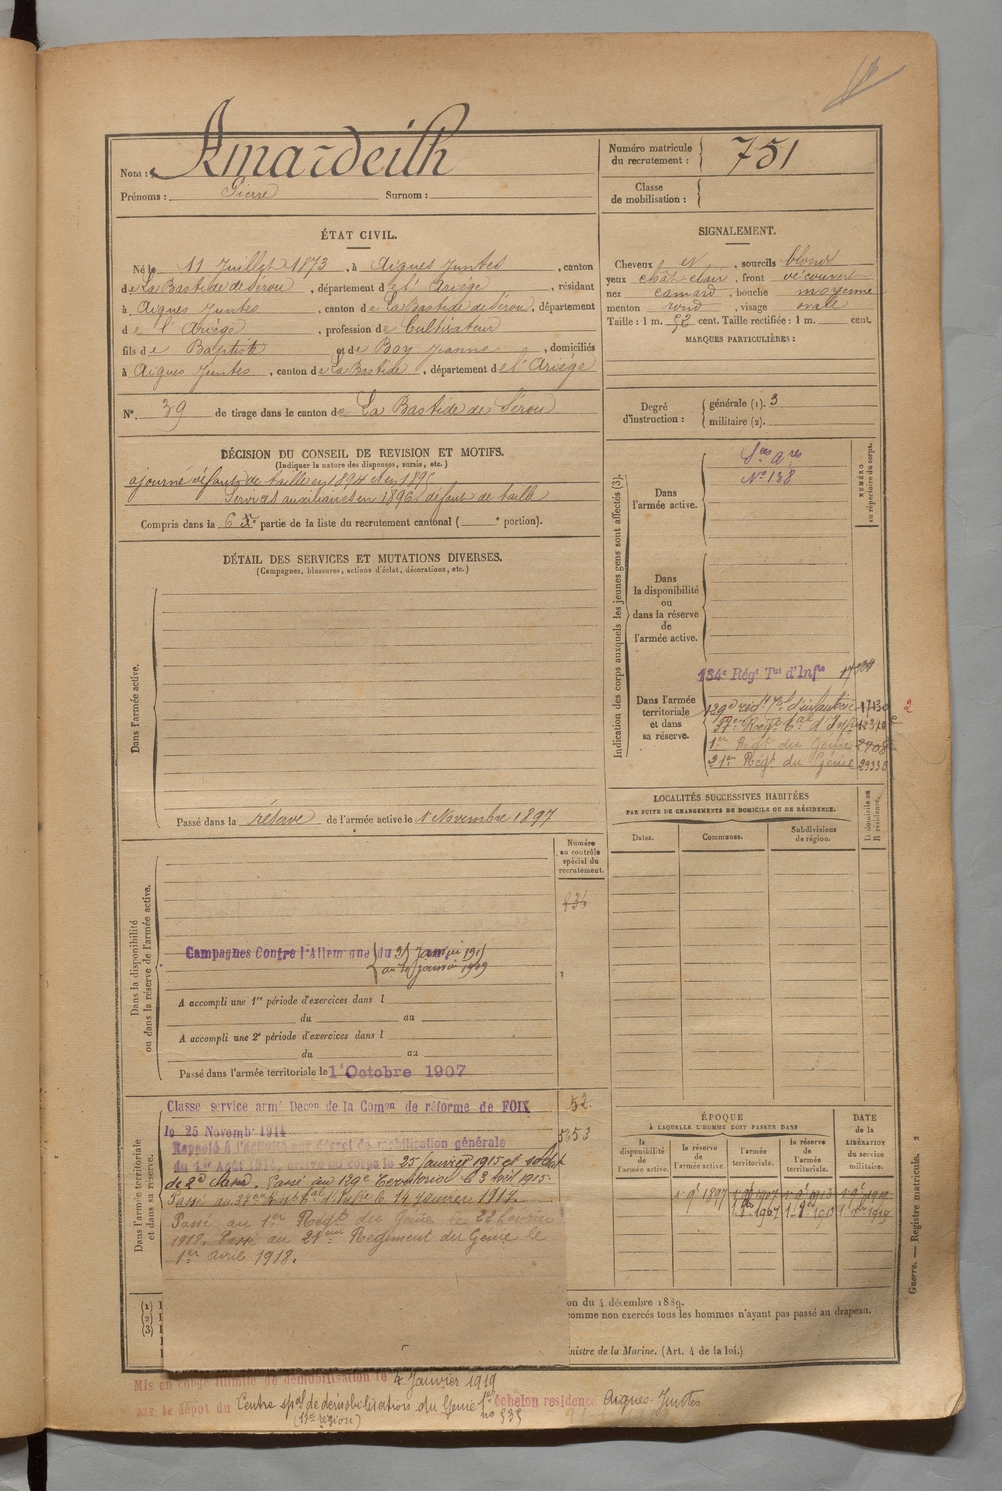 Nom : Amardeilh
Prénoms : Pierre Surnom :
Numéro matricule du recrutement : 751
Classe de mobilisation :
ÉTAT CIVIL.
Né le 11 Juillet 1873, à Aigues Juntes, canton
de La Bastide de Sérou, département de l'Ariège, résidant
à Aigues Juntes, canton de La Bastide de Sérou, département
de l'Ariège, profession de Cultivateur
fils de Baptiste et de Boy Jeanne, domiciliés
à Aigues Juntes, canton de La Bastide, département de l'Ariège
N° 39 de tirage dans le canton de La Bastide de Sérou
SIGNALEMENT.
Cheveux et, sourcils blonds
yeux chât clair, front découvert
nez camard, bouche moyenne
menton rond, visage ovale
Taille : 1 m. 52 cent. Taille rectifiée : 1 m. cent.
MARQUES PARTICULIÈRES :
Degré d'instruction : générale (1). 3
militaire (2).
DÉCISION DU CONSEIL DE RÉVISION ET MOTIFS.
(Indiquer la nature des dispenses, sursis, etc.)
ajourné défaut de taille en 1894 et en 1895
Services auxiliaires en 1896 défaut de taille
Compris dans la 6e partie de la liste du recrutement cantonal ( e portion).
DÉTAIL DES SERVICES ET MUTATIONS DIVERSES.
(Campagnes, blessures, actions d'éclat, décorations, etc.)
Dans l'armée active.
Passé dans la réserve de l'armée active le 1er Novembre 1897
Indication des corps auxquels les jeunes gens sont affectés (3).
NUMÉRO au répertoire du corps.
Dans l'armée active.
N° 138
Dans la disponibilité ou dans la réserve de l'armée active.
Dans l'armée territoriale et dans sa réserve.
134e Régt Tal d'Infie 17504
129e régt Tal d'infanterie 17130 2
37e Régt Tal d'Infie
1er Régt du Génie
21er Régt du Génie 29338
LOCALITÉS SUCCESSIVES HABITÉES
PAR SUITE DE CHANGEMENTS DE DOMICILE OU DE RÉSIDENCE.
Dates. Communes. Subdivisions de région. D domicile ou R résidence.
Numéro au contrôle spécial du recrutement.
Dans la disponibilité ou dans la réserve de l'armée active.
Campagnes Contre l'Allemagne du 25 Janvier 1915
au 4 Janvier 1919
A accompli une 1re période d'exercices dans l
du au
A accompli une 2e période d'exercices dans l
du au
Passé dans l'armée territoriale le 1er Octobre 1907
Dans l'armée territoriale et dans sa réserve.
Classé service armé Decon de la Comon de réforme de FOIX 52
le 25 Novemb 1914
Rappelé à l'activité par décret de mobilisation générale
du 1er Août 1914, arrivé au corps le 25 Janvier 1915 et soldat
de 2e classe. Passé au 129e Territorial le 3 Avril 1915.
Passé au 37eme Régt Tal d'Infie le 14 janvier 1917.
Passé au 1er Régt du Génie le 22 février
1918. Passé au 21eme Régiment du Génie le
1er avril 1918.
ÉPOQUE
À LAQUELLE L'HOMME DOIT PASSER DANS
la disponibilité de l'armée active. la réserve de l'armée active. l'armée territoriale. la réserve de l'armée territoriale.
DATE de la LIBÉRATION du service militaire.
(1)
(2)
(3)
on du 4 décembre 1889.
comme non exercés tous les hommes n'ayant pas passé au drapeau.
inistre de la Marine. (Art. 4 de la loi.)
Guerre. — Registre matricule. 2
Mis en congé illimité de démobilisation le 4 Janvier 1919
par le dépôt du Centre spal de démobilisation du Génie 1er échelon residence Aigues-Juntes
no 535